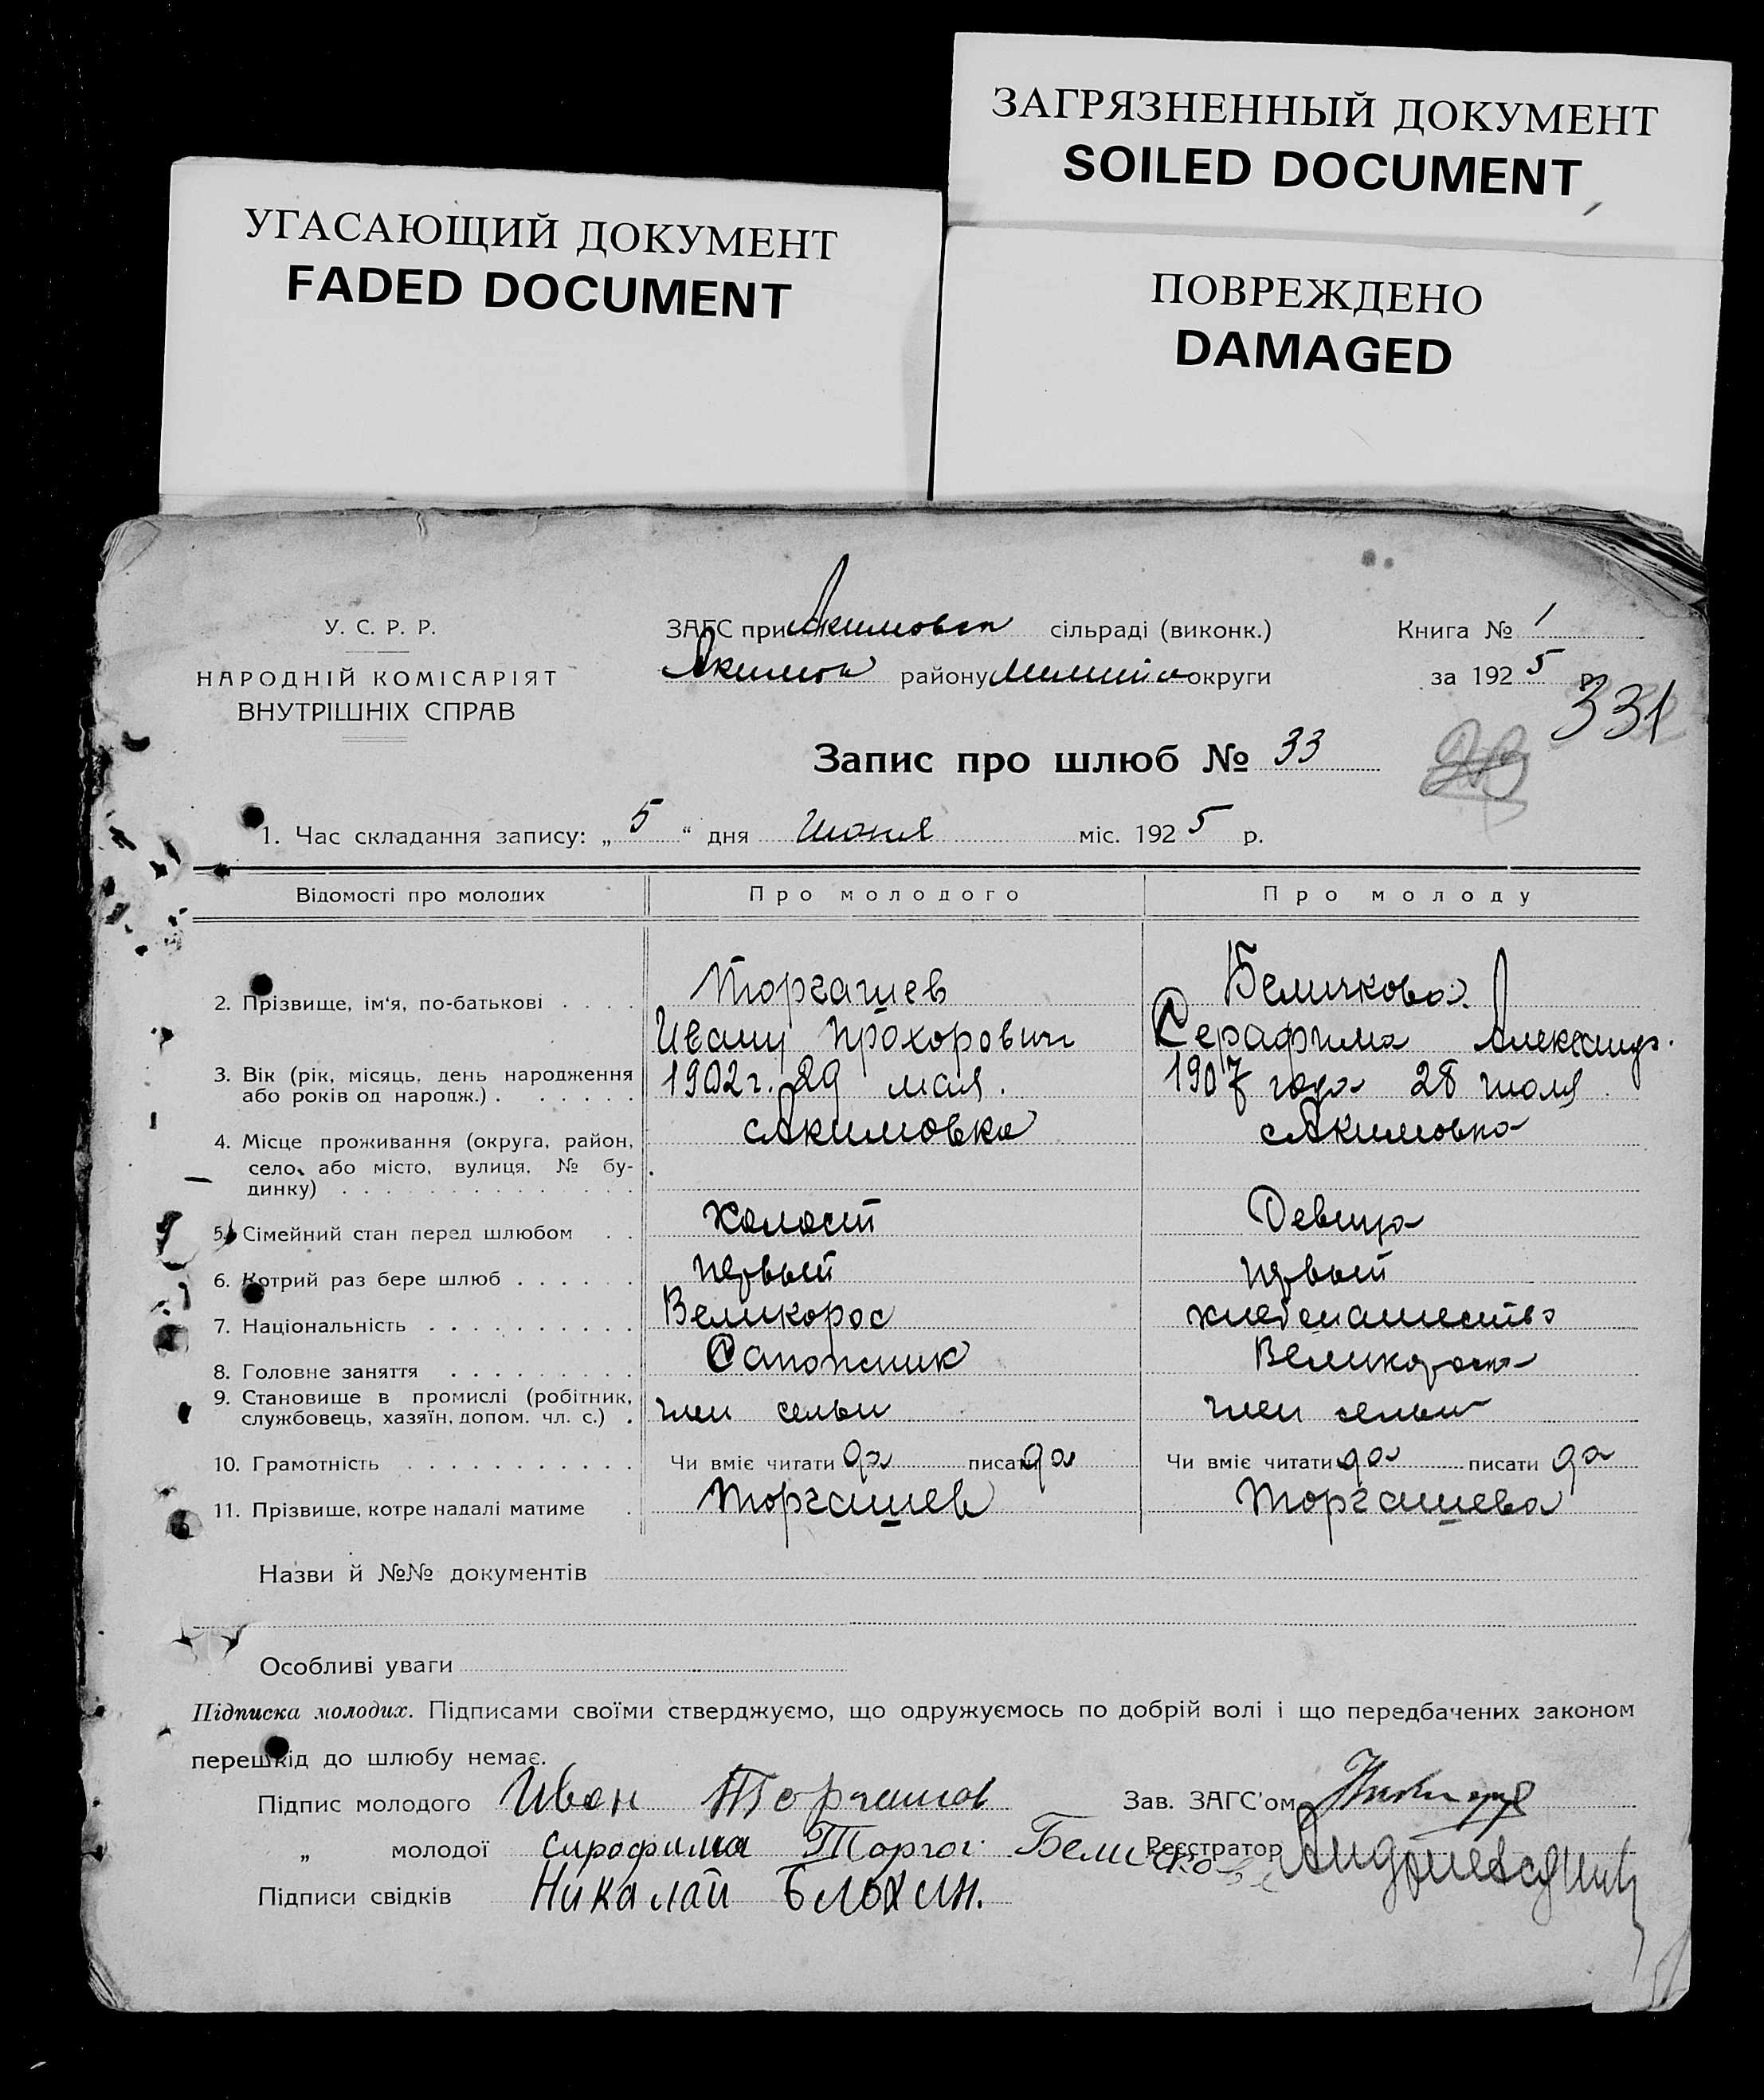 ЗАГРЯЗНЕННЫЙ ДОКУМЕНТ
SOILED DOCUMENT
УГАСАЮЩИЙ ДОКУМЕНТ
FADED DOCUMENT
ПОВРЕЖДЕНО
DAMAGED
У. С. Р. Р.
НАРОДНІЙ КОМІСАРІЯТ
ВНУТРІШНІХ СПРАВ
ЗАГС при сільраді (виконк.)
району округи
Книга № 1
за 1925 р.
331
Запис про шлюб № 33
1. Час складання запису: „ 5 “ дня Июня міс. 1925 р.
Відомості про молодих Про молодого Про молоду
2. Прізвище, ім'я, по-батькові . . . . Торгашев Беличкова.
Ивану Прохорович Серафима Александр.
3. Вік (рік, місяць, день народження або років од нарождж.) . . . . . . 1902 г. 29 мая. 1907 года 28 июля
4. Місце проживання (округа, район, село, або місто, вулиця, № будинку) . . . . . . . . . . . . . . сАкимовка сАкимовка
5. Сімейний стан перед шлюбом . . Холост Девица
6. Котрий раз бере шлюб . . . . . . первый первый
7. Національність . . . . . . . . . . Великорос хлебопашество
8. Головне заняття . . . . . . . . . Сапожник Великороска
9. Становище в промислі (робітник, службовець, хазяїн, допом. чл. с.) . член семьи член семьи
10. Грамотність . . . . . . . . . . . Чи вміє читати да писати да Чи вміє читати да писати да
11. Прізвище, котре надалі матиме . Торгашев Торгашева
Назви й №№ документів
Особливі уваги
Підписка молодих. Підписами своїми стверджуємо, що одружуємось по добрій волі і що передбачених законом
перешкід до шлюбу немає.
Підпис молодого Иван Торгашов Зав. ЗАГС'ом
„ молодої Сирофима Торгог Беличкове Реєстратор
Підписи свідків Никалай Блохин.